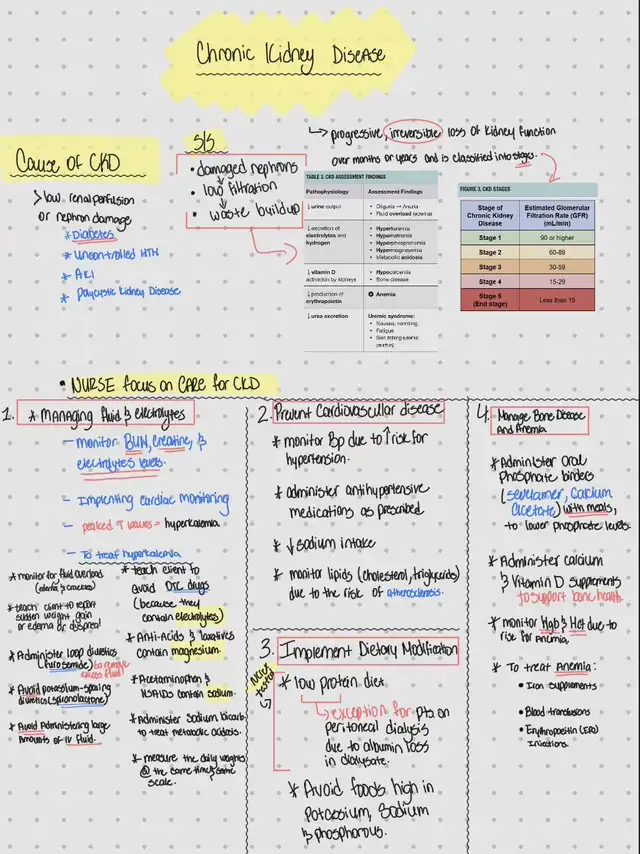 Chronic Kidney Disease
Cause of CKD
> low renal perfusion
or nephron damage
* Diabetes
* Uncontrolled HTN
* AKI
* Polycystic Kidney Disease
S/S
• damaged nephrons
↓
• low filtration
↓
• waste buildup
↳ progressive, irreversible loss of kidney function
over months or years and is classified into stages.
TABLE 3. CKD ASSESSMENT FINDINGS
Pathophysiology Assessment Findings
↓ urine output • Oliguria → Anuria
• Fluid overload (edema)
↓ excretion of electrolytes and hydrogen • Hyperkalemia
• Hypernatremia
• Hyperphosphatemia
• Hypermagnesemia
• Metabolic acidosis
↓ vitamin D activation by kidneys • Hypocalcemia
• Bone disease
↓ production of erythropoietin Anemia
↓ urea excretion Uremic syndrome:
• Nausea, vomiting
• Fatigue
• Skin itching (uremic pruritus)
FIGURE 3. CKD STAGES
Stage of Chronic Kidney Disease Estimated Glomerular Filtration Rate (GFR) (mL/min)
Stage 1 90 or higher
Stage 2 60-89
Stage 3 30-59
Stage 4 15-29
Stage 5 (End stage) Less than 15
• NURSE focus on CARE for CKD
1. * Managing fluid & electrolytes
– monitor BUN, Creatine, &
electrolytes levels.
– Implenting cardiac monitoring
– peaked T waves = hyperkalemia.
– To treat hyperkalemia
* monitor for fluid overload
(edema & crackles)
* teach client to report
sudden weight gain
or edema or dyspnea!
* Administer loop diuretics
(furosemide) to remove
excess fluid!
* Avoid potassium-sparing
diuretics (spironolactone)
* Avoid Administering large
Amounts of IV fluid.
* teach client to
avoid OTC drugs
(because they
contain electrolytes)
* Anti-Acids & laxatives
contain magnesium.
* Acetaminophen &
NSAIDs contain sodium.
* Administer Sodium bicarb
to treat metabolic acidosis.
* measure the daily weights
@ the same time & same
scale.
2. Prevent Cardiovascular disease
* monitor Bp due to ↑ risk for
hypertension.
* administer antihypertensive
medications as prescribed
* ↓ sodium intake
* monitor lipids (cholesterol, triglycerids)
due to the risk of atherosclerosis.
3. Implement Dietary Modification
NCLEX tested
* low protein diet
↳ exception for pts on
peritoneal dialysis
due to albumin loss
in dialysate.
* Avoid foods high in
Potassium, Sodium
& phosphorous.
4. Manage Bone Disease
And Anemia
* Administer oral
Phosphate binders
(sevelamer, Calcium
Acetate) with meals,
to lower phosphate levels.
* Administer calcium
& Vitamin D supplements
to support bone health
* monitor Hgb & Hct due to
risk for Anemia.
* To treat Anemia:
• Iron supplements
• Blood transfusions
• Erythropoietin (EPO)
injections.